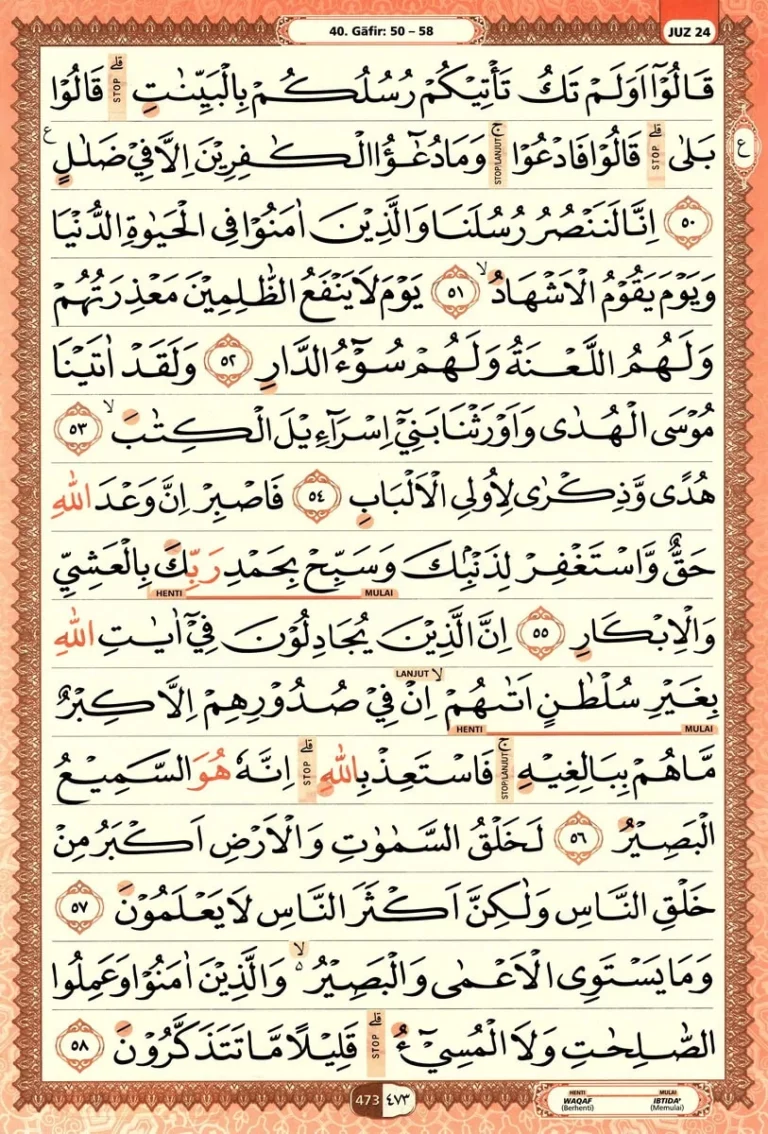 40. Gāfir: 50 – 58
JUZ 24
قَالُوْٓا اَوَلَمْ تَكُ تَأْتِيْكُمْ رُسُلُكُمْ بِالْبَيِّنٰتِۗ STOP قَالُوْا
بَلٰىۗ STOP قَالُوْا فَادْعُوْاۚ STOP/LANJUT وَمَا دُعٰۤؤُا الْكٰفِرِيْنَ اِلَّا فِيْ ضَلٰلٍ ع
ع
٥٠ اِنَّا لَنَنْصُرُ رُسُلَنَا وَالَّذِيْنَ اٰمَنُوْا فِى الْحَيٰوةِ الدُّنْيَا
وَيَوْمَ يَقُوْمُ الْاَشْهَادُۙ ٥١ يَوْمَ لَا يَنْفَعُ الظّٰلِمِيْنَ مَعْذِرَتُهُمْ
وَلَهُمُ اللَّعْنَةُ وَلَهُمْ سُوْۤءُ الدَّارِ ٥٢ وَلَقَدْ اٰتَيْنَا
مُوْسَى الْهُدٰى وَاَوْرَثْنَا بَنِيْٓ اِسْرَاۤءِيْلَ الْكِتٰبَۙ ٥٣
هُدًى وَّذِكْرٰى لِاُولِى الْاَلْبَابِ ٥٤ فَاصْبِرْ اِنَّ وَعْدَ اللّٰهِ
حَقٌّ وَّاسْتَغْفِرْ لِذَنْۢبِكَ وَسَبِّحْ بِحَمْدِ رَبِّكَ بِالْعَشِيِّ
HENTI MULAI
وَالْاِبْكَارِ ٥٥ اِنَّ الَّذِيْنَ يُجَادِلُوْنَ فِيْٓ اٰيٰتِ اللّٰهِ
بِغَيْرِ سُلْطٰنٍ اَتٰىهُمْۙ LANJUT اِنْ فِيْ صُدُوْرِهِمْ اِلَّا كِبْرٌ
HENTI MULAI
مَّا هُمْ بِبَالِغِيْهِۚ STOP/LANJUT فَاسْتَعِذْ بِاللّٰهِۗ STOP اِنَّهٗ هُوَ السَّمِيْعُ
الْبَصِيْرُ ٥٦ لَخَلْقُ السَّمٰوٰتِ وَالْاَرْضِ اَكْبَرُ مِنْ
خَلْقِ النَّاسِ وَلٰكِنَّ اَكْثَرَ النَّاسِ لَا يَعْلَمُوْنَ ٥٧
وَمَا يَسْتَوِى الْاَعْمٰى وَالْبَصِيْرُ ەۙ وَالَّذِيْنَ اٰمَنُوْا وَعَمِلُوا
الصّٰلِحٰتِ وَلَا الْمُسِيْۤءُۗ STOP قَلِيْلًا مَّا تَتَذَكَّرُوْنَ ٥٨
473 ٤٧٣
HENTI WAQAF (Berhenti)
MULAI IBTIDA' (Memulai)